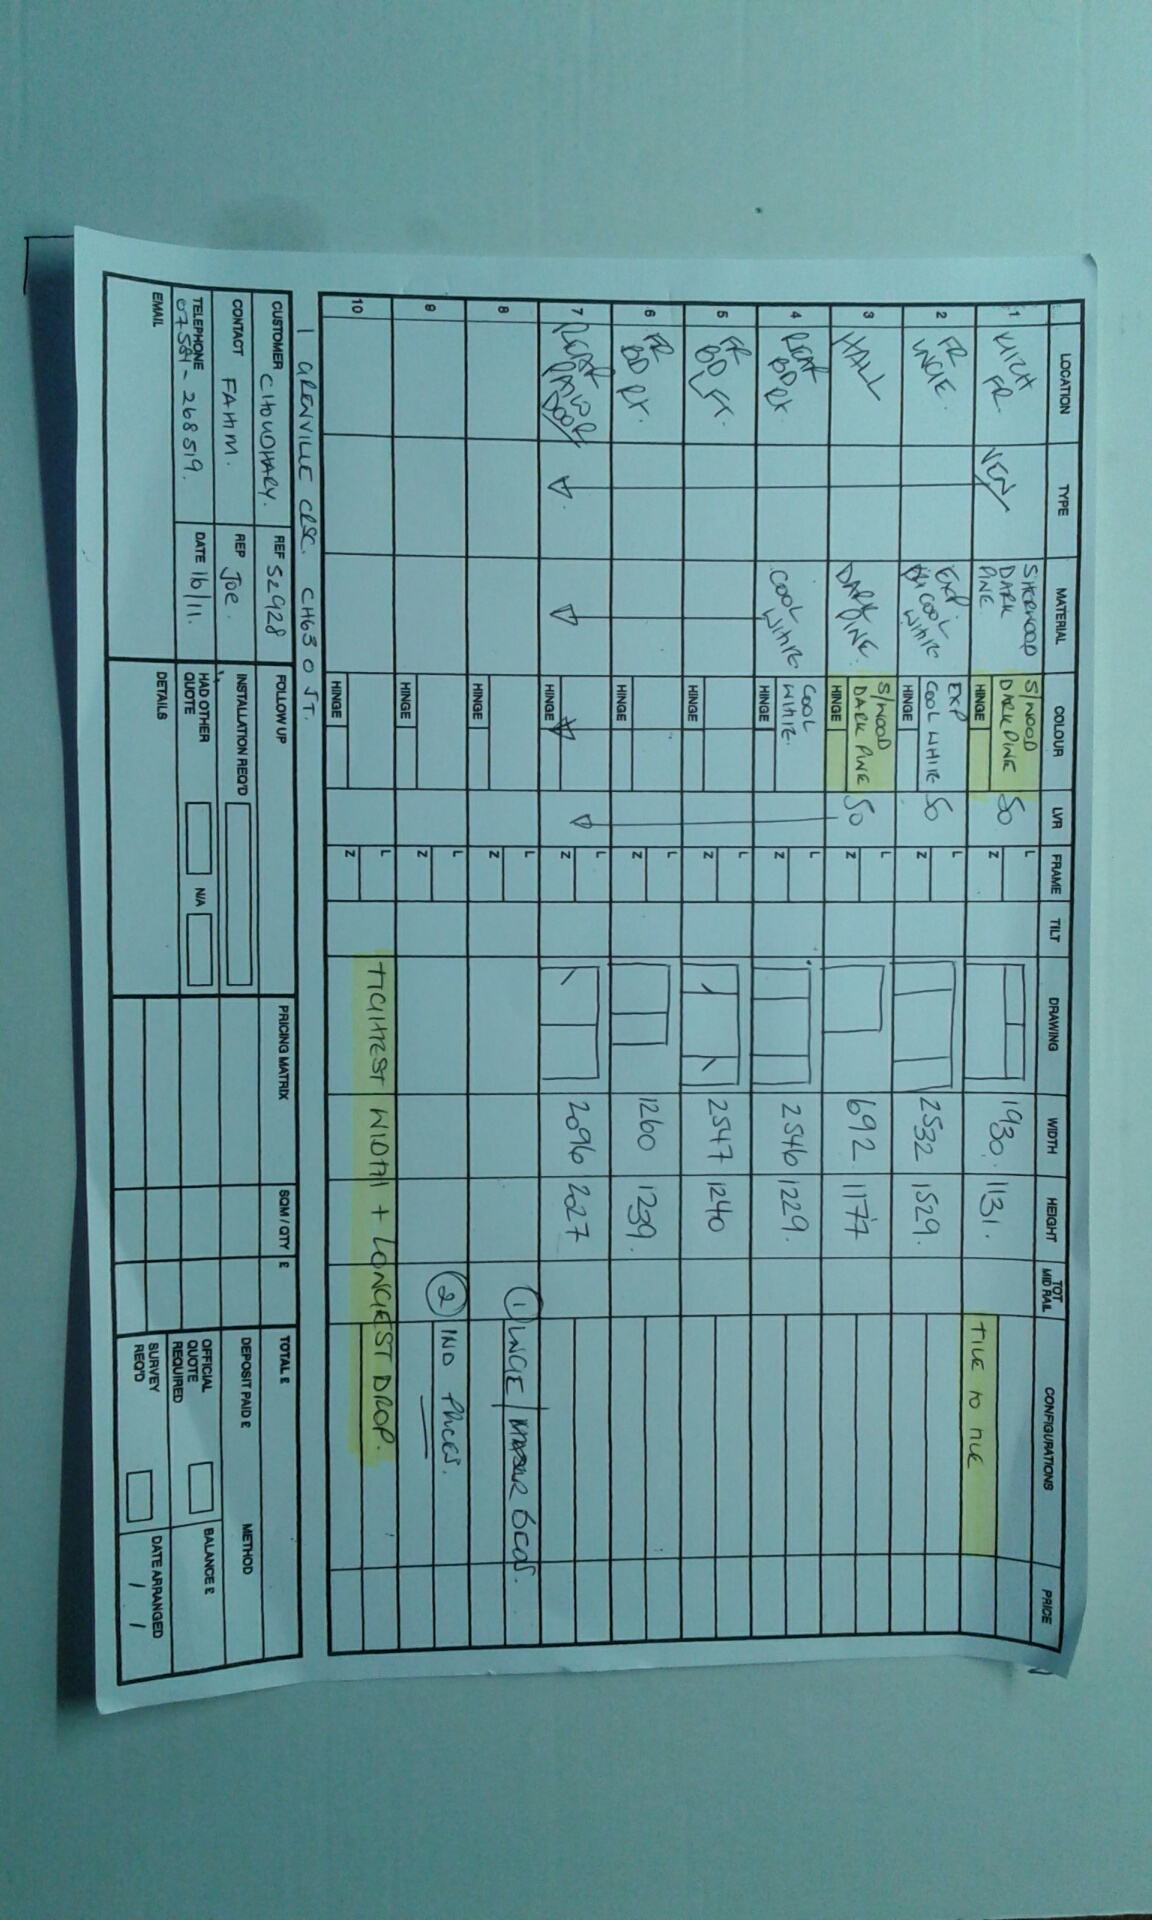 LOCATION TYPE MATERIAL COLOUR LVR FRAME TILT DRAWING WIDTH HEIGHT TOT MID RAIL CONFIGURATIONS PRICE
1 KITCH FR. VEN SHERWOOD DARK PINE. S/WOOD DARK PINE HINGE 50 L Z 1930. 1131. TILE TO TILE
2 FR LNGE. EXP. COOL WHITE EXP COOL WHITE HINGE 50 L Z 2532 1529.
3 HALL DARK PINE. S/WOOD DARK PINE HINGE 50 L Z 692 1177
4 REAR BD RT COOL WHITE COOL WHITE. HINGE L Z 2546 1229.
5 FR BD LFT. HINGE L Z 2547 1240
6 FR BD RT. HINGE L Z 1260 1239.
7 REAR PATIO DOOR HINGE L Z 2096 2027
8 HINGE L Z ① LNGE/
9 HINGE L Z ② IND PRICES.
10 HINGE L Z TIGHTEST WIDTH + LONGEST DROP.
1 GRENVILLE CRSC. CH63 0JT.
CUSTOMER CHOUDHARY. REF 52928 FOLLOW UP PRICING MATRIX SQM / QTY £ TOTAL £
CONTACT FAHIM. REP JOE. INSTALLATION REQ'D DEPOSIT PAID £ METHOD
TELEPHONE 07584-268519. DATE 16/11. HAD OTHER QUOTE N/A OFFICIAL QUOTE REQUIRED BALANCE £
EMAIL DETAILS SURVEY REQ'D DATE ARRANGED / /